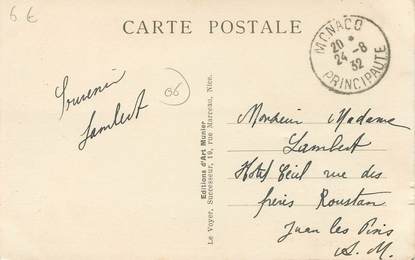 6 €
CARTE POSTALE
MONACO
20 *
24 - 8
32
PRINCIPAUTE
Souvenir
Lambert
06
Editions d'Art Munier
Le Voyer, Successeur, 19, rue Marceau, Nice.
Monsieur Madame
Lambert
Hotel Cecil rue des
frères Roustan
Juan les Pins
A. M.